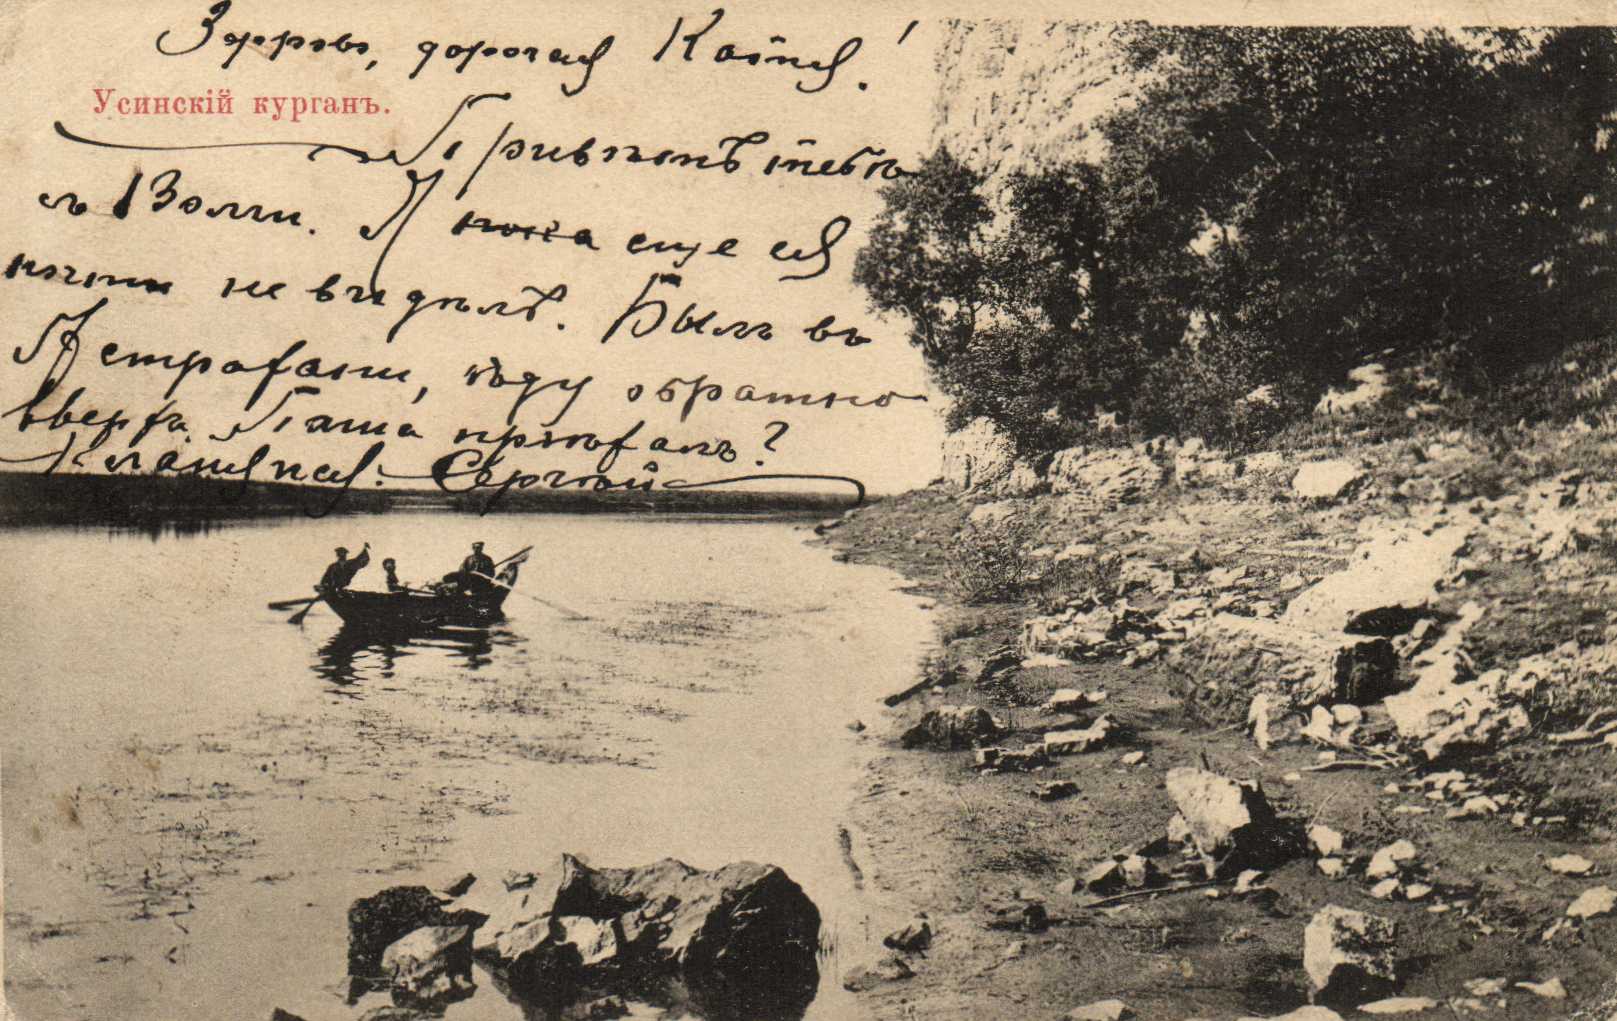 Здорово, дорогая Катя!
Усинскій курганъ.
Привѣтъ тебѣ
съ Волги. Я пока еще ея
почти не видѣлъ. Былъ въ
Астрахани, ѣду обратно
вверхъ. Паша пріѣхалъ?
Кланяйся. Сергѣй